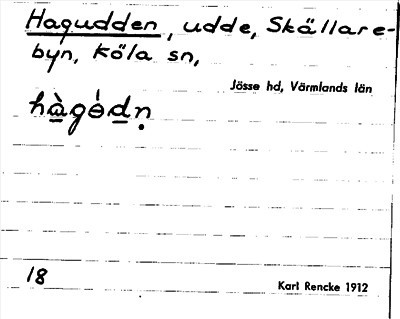 Hagudden, udde, Skällare-
byn, Köla sn,
Jösse hd, Värmlands län
18
Karl Rencke 1912